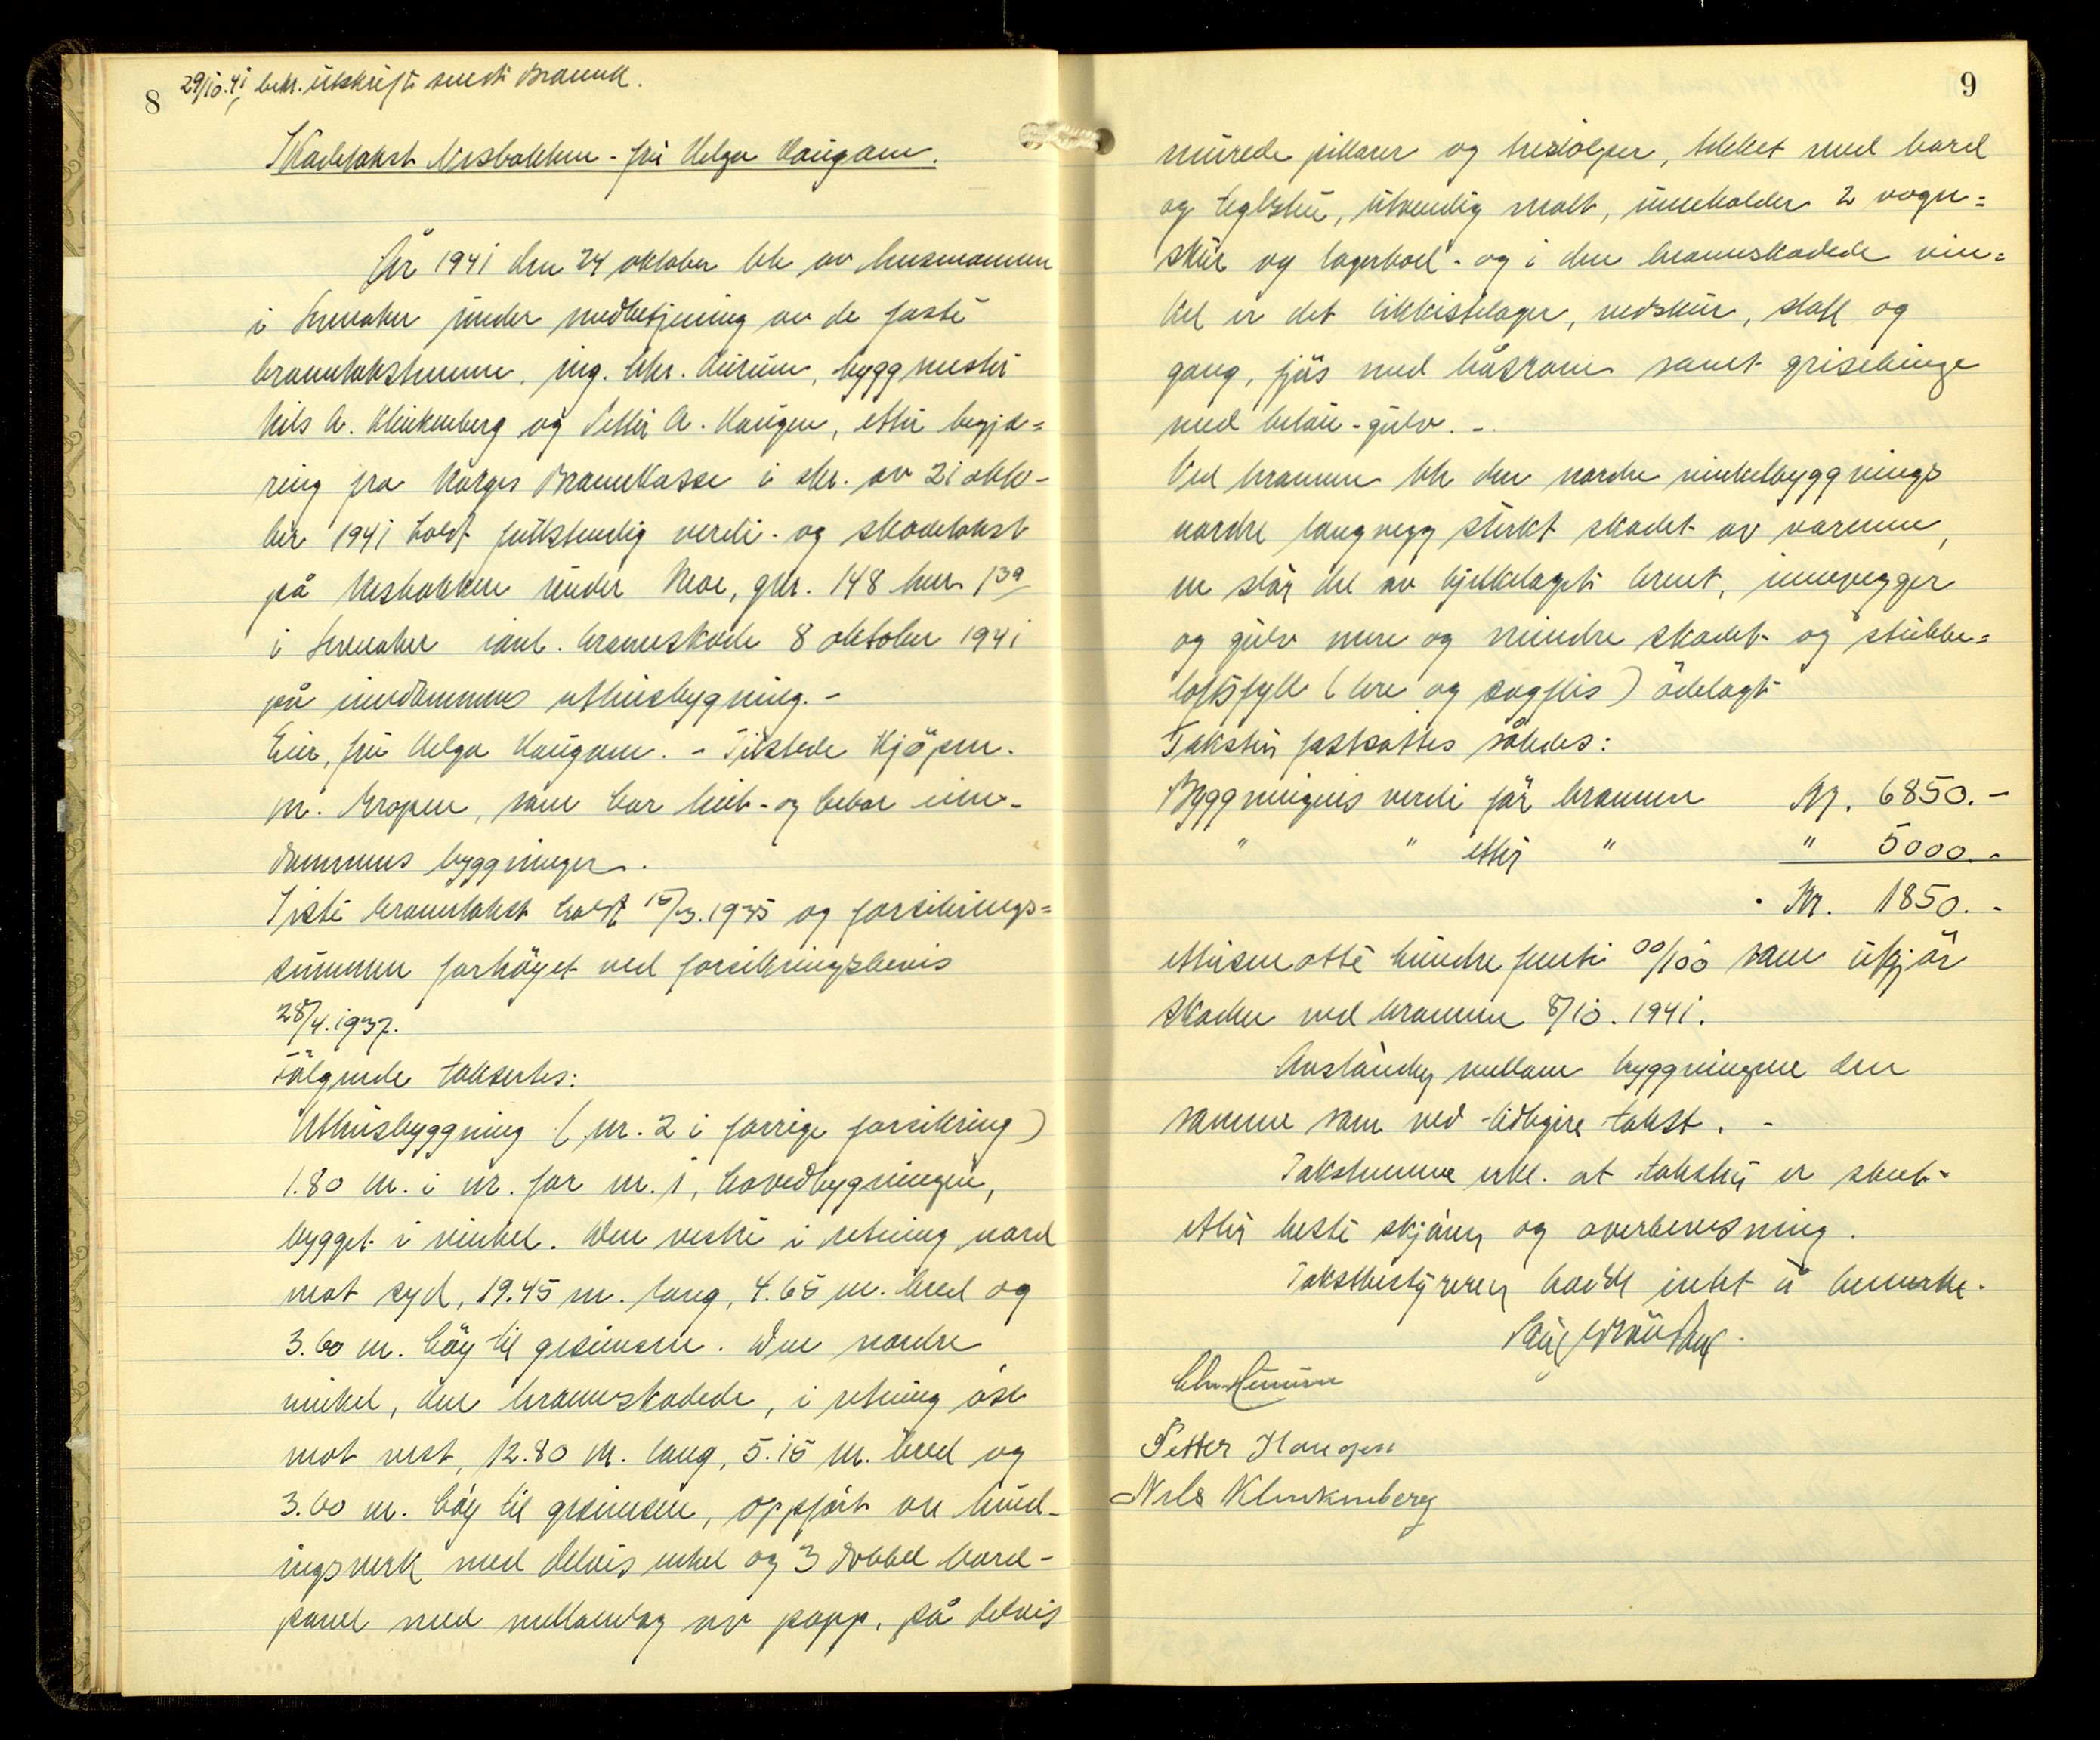 8
29/10.41, bekr. utskrift sendt Brannk.
Skadetakst Nesbakken - fru Helga Haugom.
År 1941 den 24 oktober ble av lensmannen
i under medbetjening av de faste
branntakstmenn, ing. Chr. byggmester
Nils A. Klinkenberg og Petter A. Haugen, etter begjæ=
ring fra Norges Brannkasse i skr. av 21 okto-
ber 1941 holdt fullstendig verdi- og skadetakst
på Nesbakken under Moe, gnr. 148 bnr. 139
i anl. brannskade 8 oktober 1941
på eiendommens uthusbygning. -
Eier, fru Helga Haugom. - Tilstede kjøpm.
M. Kropen, som har leiet - og bebor eien-
dommens bygninger.
Siste branntakst holdt 15/3.1935 og forsikrings=
summen forhøyet ved forsikringsbevis
28/4.1937.
Følgende takseres:
Uthusbyggning (nr. 2 i forrige forsikring)
1.80 m. i nr. for nr. 1, hovedbygningen,
bygget i vinkel. Den vestre i retning nord
mot syd, 19.45 m. lang, 4.65 m. bred og
3.60 m. høy til gesimsen. Den nordre
vinkel, den brannskadede, i retning øst
mot vest, 12.80 m. lang, 5.15 m. bred og
3.60 m. høy til gesimsen, oppført av bind-
ingsverk med delvis enkel og 3 dobbel bord-
panel med mellomlag av papp, på delvis
9
murede pillarer og trestolper, tekket med bord
og teglsten, utvendig malt, inneholder 2 vogn=
skur og lagerbod - og i den brannskadede vin=
kel er det likkistelager, vedskur, stall og
gang, fjøs med båsrom samt grisebinge
med betong-gulv. -
Ved brannen ble den nordre vinkelbyggnings
nordre langvegg sterkt skadet av varmen,
en stor del av bjelkelaget brent, innevegger
og gulv mere og mindre skadet og stubbe=
loftsfyll (lere og sagflis) ødelagt
Taksten fastsattes således:
Byggningens verdi før brannen Kr. 6850.-
" " etter " " 5000.-
Kr. 1850.-
ettusenottehundrefemti 00/100 som utgjør
skaden ved brannen 8/10.1941.
Avstanden mellom byggningene den
samme som ved tidligere takst. -
Takstmennene erkl. at taksten er skeet
etter beste skjønn og overbevisning.
Takstbestyreren hadde intet å bemerke.
Chr.
Petter Haugen
Nils Klinkenberg